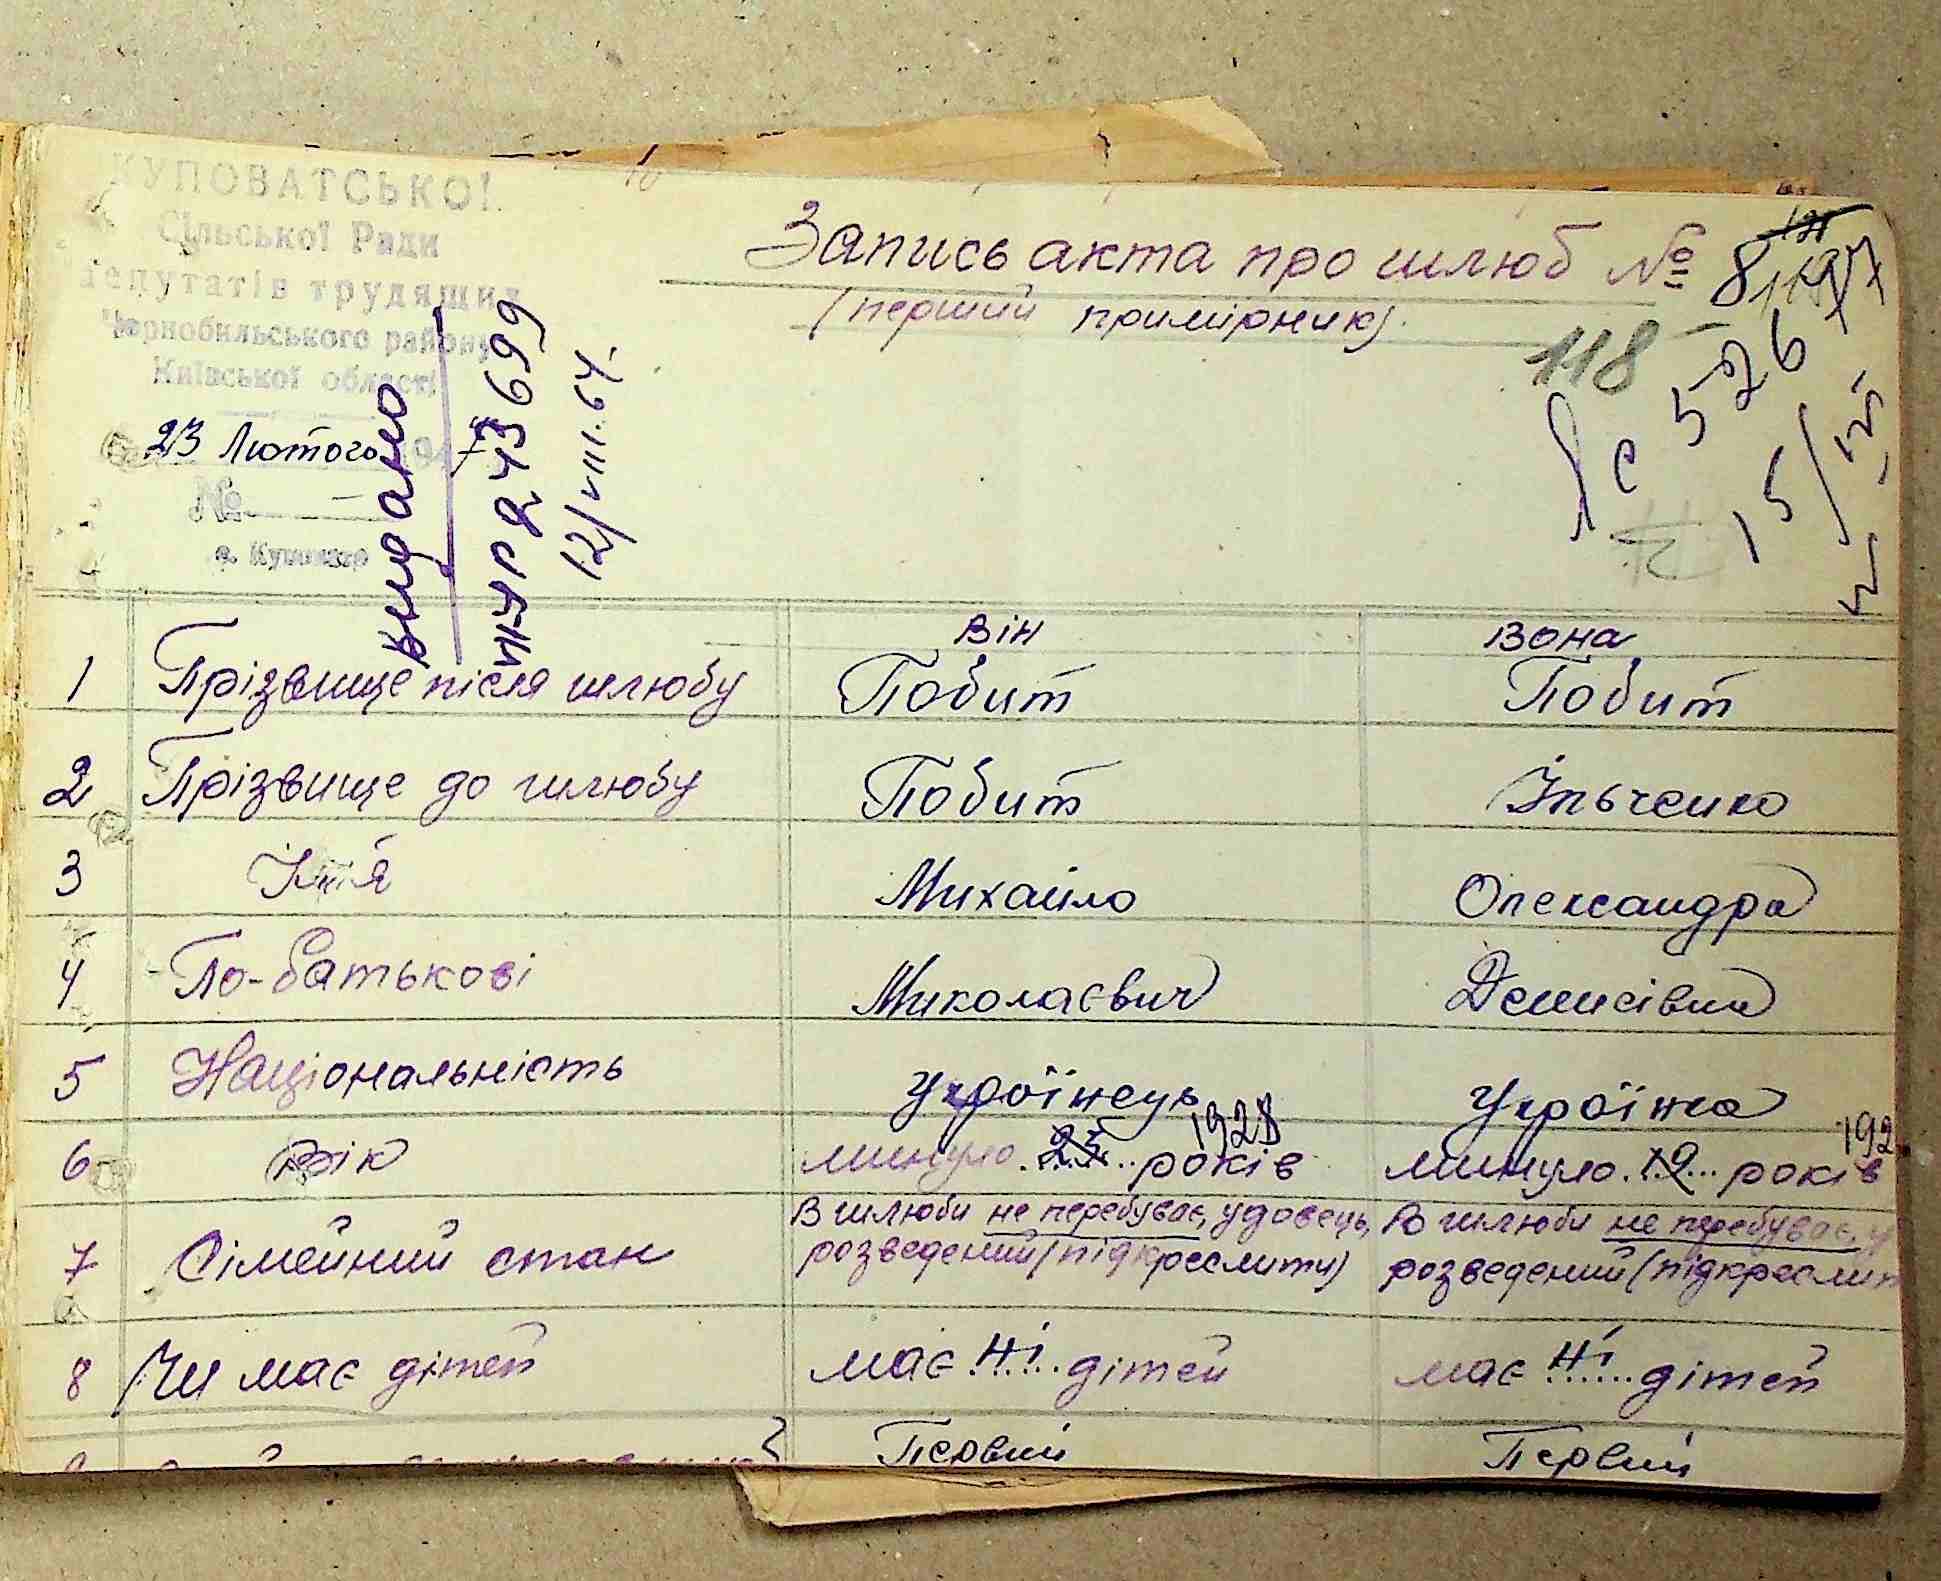 КУПОВАТСЬКОЇ
Сільської Ради
депутатів трудящих
Чорнобильського району
Київської області
23 Лютого
№
с. Куповате
видано
243699
12/VIII.64.
Запись акта про шлюб № 8
(перший примірник)
118
526
15/
він вона
1 Прізвище після шлюбу Побит Побит
2 Прізвище до шлюбу Побит Ільченко
3 Імя Михайло Олександра
4 По-батькові Миколаєвич Денисівна
5 Національність Українець Українка
1928 192
6 Вік минуло .... років минуло .19... років
7 Сімейний стан В шлюби не перебуває, удовець, В шлюби не перебуває, у
розведений (підкреслити) розведений (підкресли
8 Чи має дітей має ні..... дітей має ні...... дітей
Первий Первий